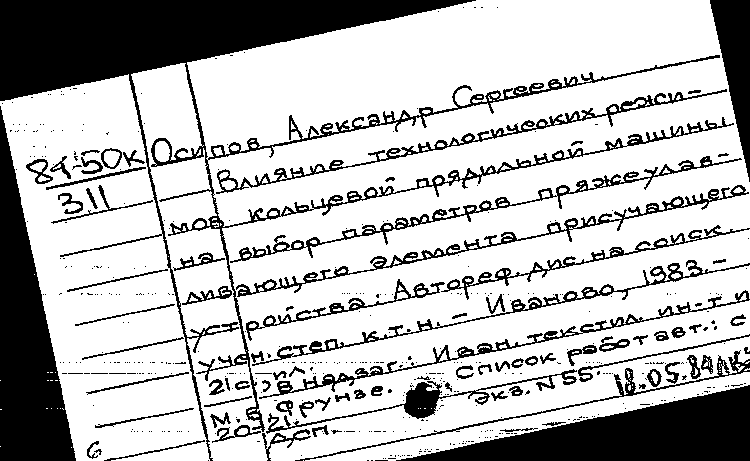 84-50к Осипов, Александр Сергеевич.
3.11 Влияние технологических режи-
мов кольцевой прядильной машины
на выбор параметров пряжеулав-
ливающего элемента присучающего
устройства: Автореф. дис. на соиск.
учен. степ. к.т.н. - Иваново, 1983. -
21с., ил.
В надзаг.: Иван. текстил. ин-т и
М.В. Фрунзе. Список работ авт.: с
20-21. Экз. N 55. 18.05.84
Дсп.
6